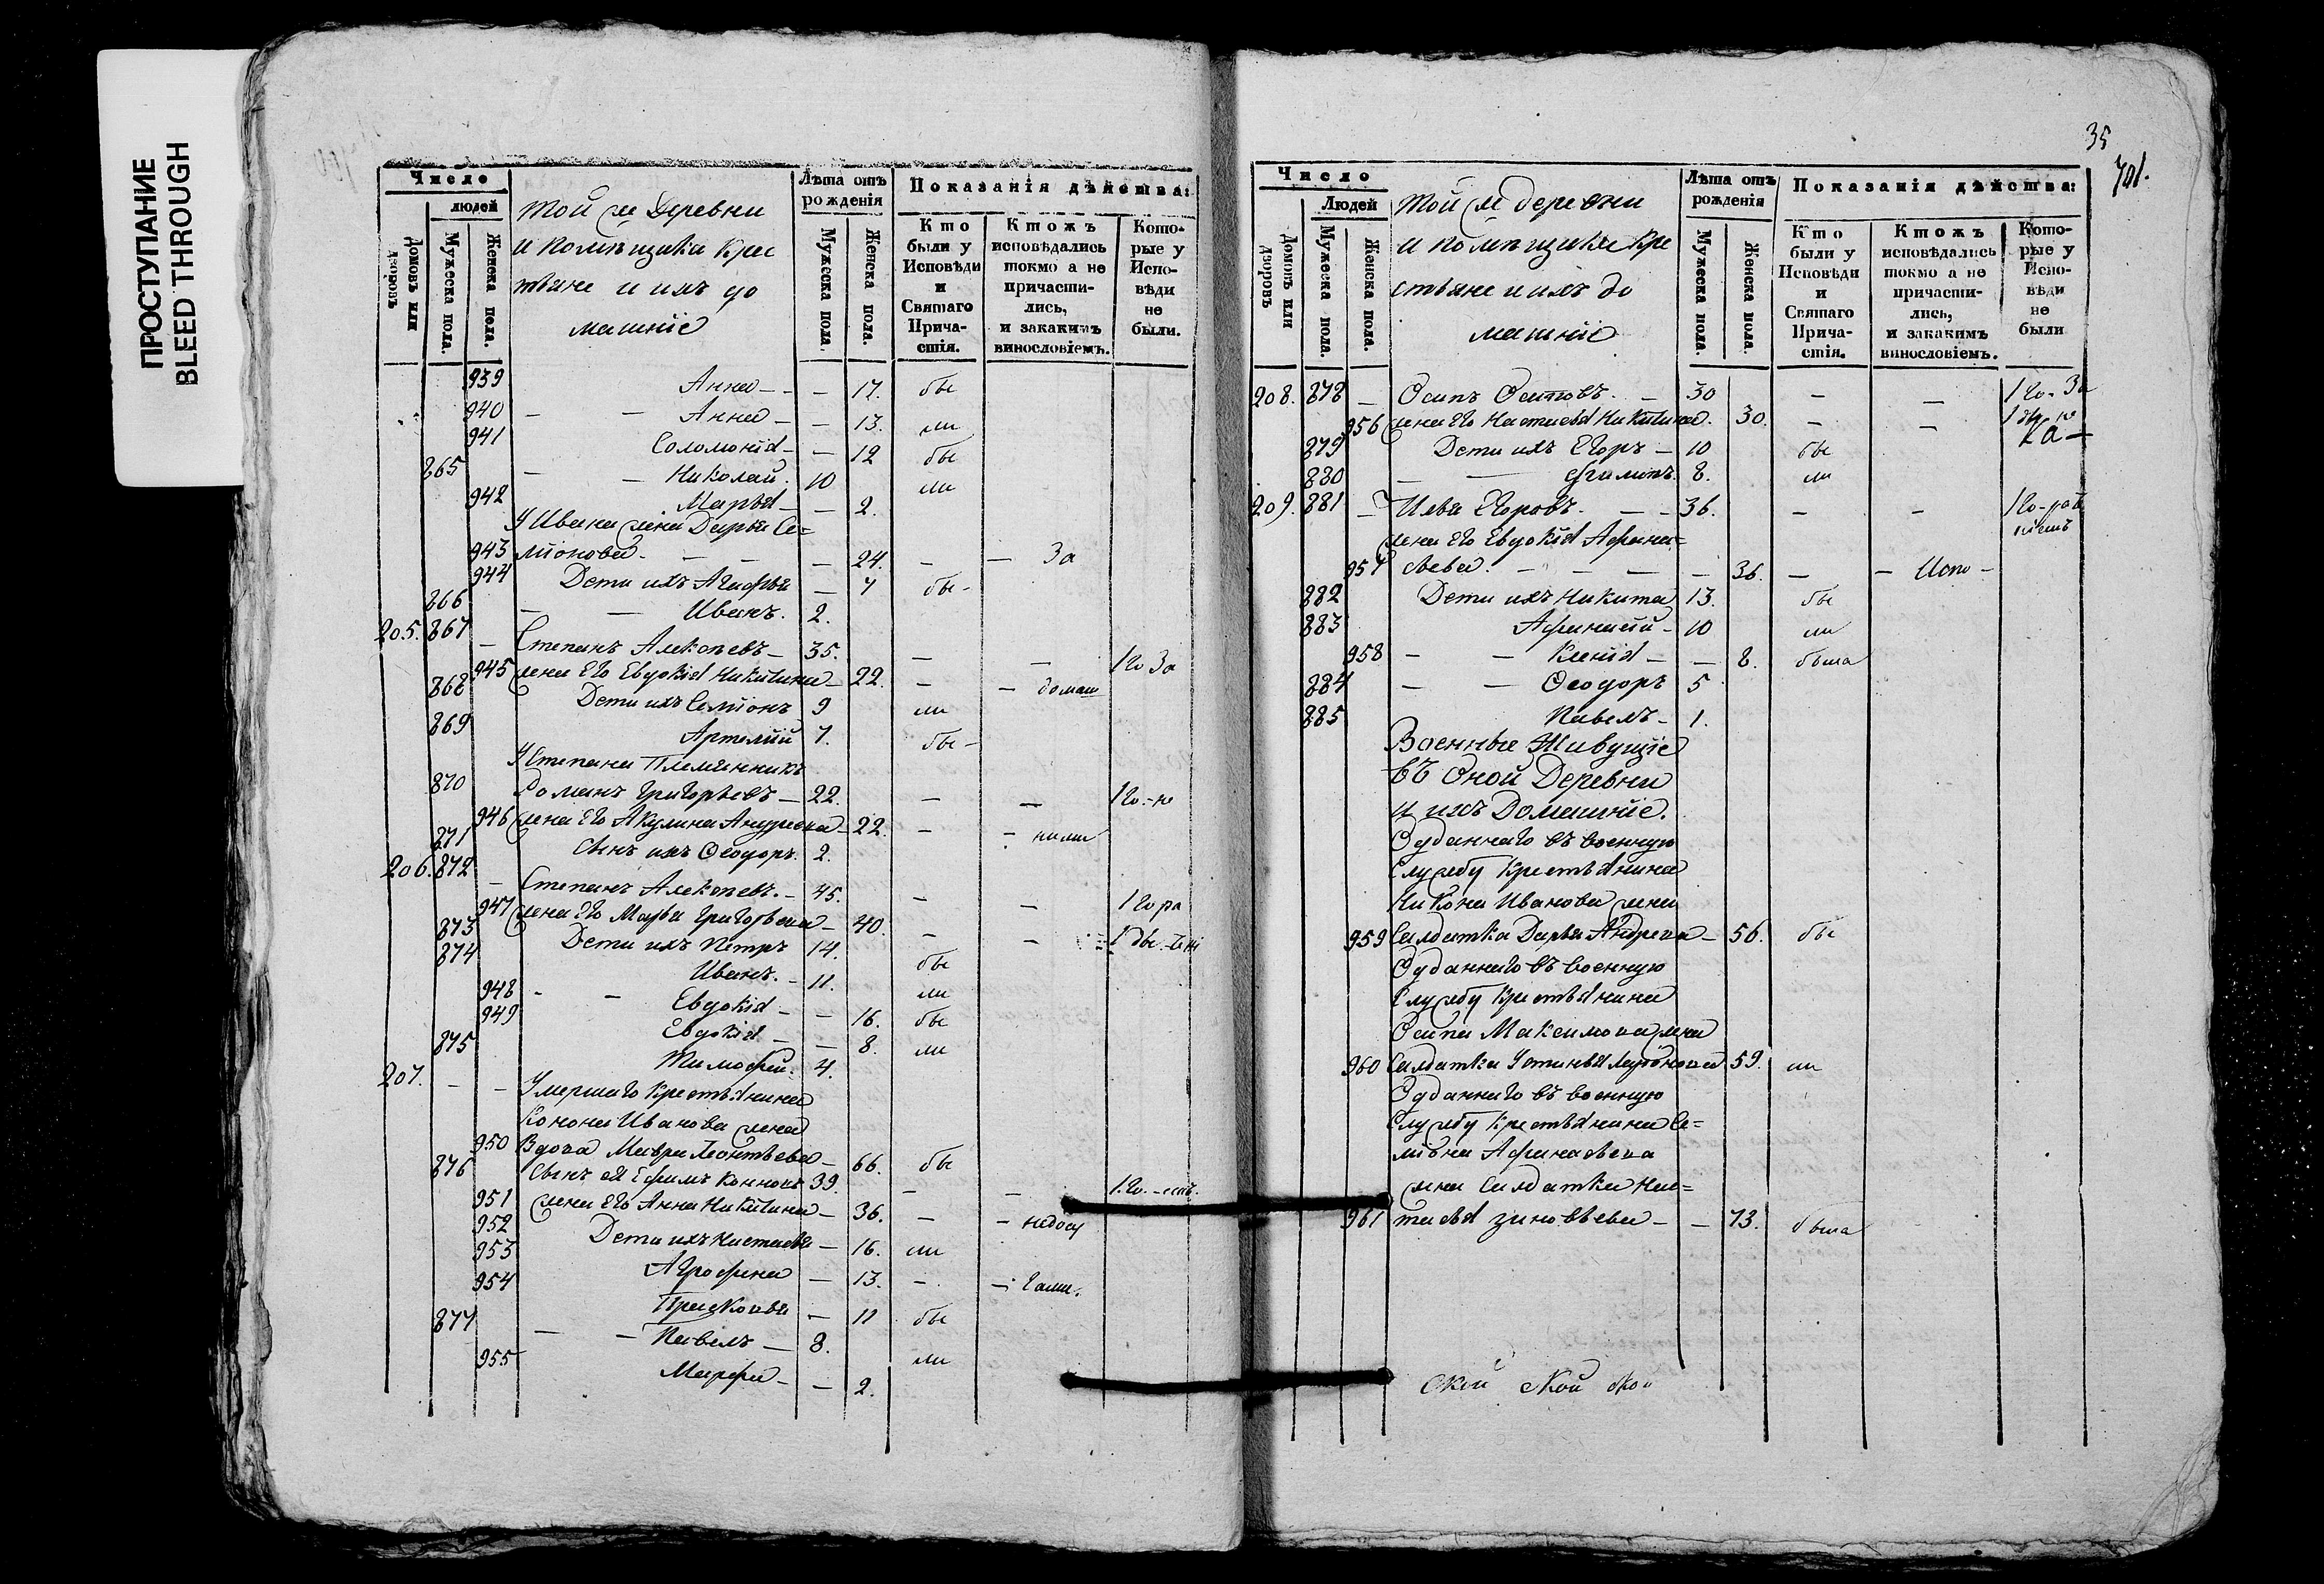 ПРОСТУПАНИЕ
BLEED THROUGH
Число
людей
Домовъ или дворовъ
Мужеска пола.
Женска пола.
той же Деревни
и помѣщика крес
тьяне и ихъ до
машніе
Лѣта отъ рожденія
Мужеска пола.
Женска пола.
Показанія дѣйства:
Кто были у Исповѣди и Святаго Прича- стія.
Ктожъ исповѣдались токмо а не причасти- лись, и закакимъ винословіемъ.
Кото- рые у Испо- вѣди не были.
939 Анна - - 17. бы
940 - - Анна - - 13. ли
941 Соломонія - - 12 бы
865 - - Николай. 10 ли
942 Марья - - 2.
У Ивана жена Дарья Се=
943 міонова - - - - 24. - - За
944 Дети ихъ Агафья - 7 бы -
866 - - Иванъ. 2.
205. 867 - Степанъ Алексѣевъ - 35. - - 1 го За
945 жена Его Евдокія Никитина - 22. - - домаш
868 Дети ихъ Семіонъ 9 ли
869 Артемій 7. бы -
У Степана Племянникъ
870 Романъ Григорьевъ - 22. - - 1 го - не
946 жена Его Акулина Андреева - 22. - - ними
871 Сынъ ихъ Ѳеодоръ. 2.
206. 872 - Степанъ Алексѣевъ. - 45. - - 1 го ра
947 жена Его Марья Григорьева - 40. - -
873 Дети ихъ Петръ 14. бы
874 Иванъ. - 11. ли
948 - - Евдокія - - 16. бы
949 Евдокія - - 8. ли
875 Тимофей. 4.
207. - - Умершаго крестьянина
Конона Иванова жена
950 Вдова Мавра Леонтьева - 66. бы
876 Сынъ ея Ефимъ Кононовъ 39. - -
951 жена Его Анна Никитина - 36. - - недосу
952 Дети ихъ Настасья - 16. ли
953 Агрофина - 13. - - гами.
954 Прасковья - 11 бы
877 - - Павелъ - 8. ли
955 Марфа - - 2.
35
701.
Число
Людей
Домовъ или дворовъ
Мужеска пола.
Женска пола.
той же деревни
и помѣщика кре
стьяне и ихъ до
машніе
Лѣта отъ рожденія
Мужеска пола.
Женска пола.
Показанія дѣйства:
Кто были у Исповѣди и Святаго Прича- стія.
Ктожъ исповѣдались токмо а не причасти- лись, и закакимъ винословіемъ.
Кото- рые у Испо- вѣди не были
208. 878 - Осипъ Осиповъ. - 30 - - 1 го - За
956 жена Его Настасья Никитина. 30. - -
879 Дети ихъ Егоръ - 10 бы
880 - - 8. ли
209. 881 - Илья Егоровъ. - - 36. - -
жена Его Евдокія Афана=
957 сьева. - - - - 36. - - Испо -
882 Дети ихъ Никита 13. бы
883 Афанасій - 10 ли
958 - - Ксенія - - 8. была
884 - - Ѳеодоръ 5
885 Павелъ - 1.
Военные Живущіе
въ Оной Деревни
и ихъ Домашніе.
Отданнаго въ военную
Службу Крестьянина
Никона Иванова жена
959 Салдатка Дарья Андреева - 56. бы
Отданнаго въ военную
Службу Крестьянина
Осипа Максимова жена
960 Салдатка Устинья 59. ли
Отданнаго въ военную
Службу Крестьянина Се=
міона Афанасьева
жена Салдатка Нас=
961 тасья Зиновьева - - 73. была